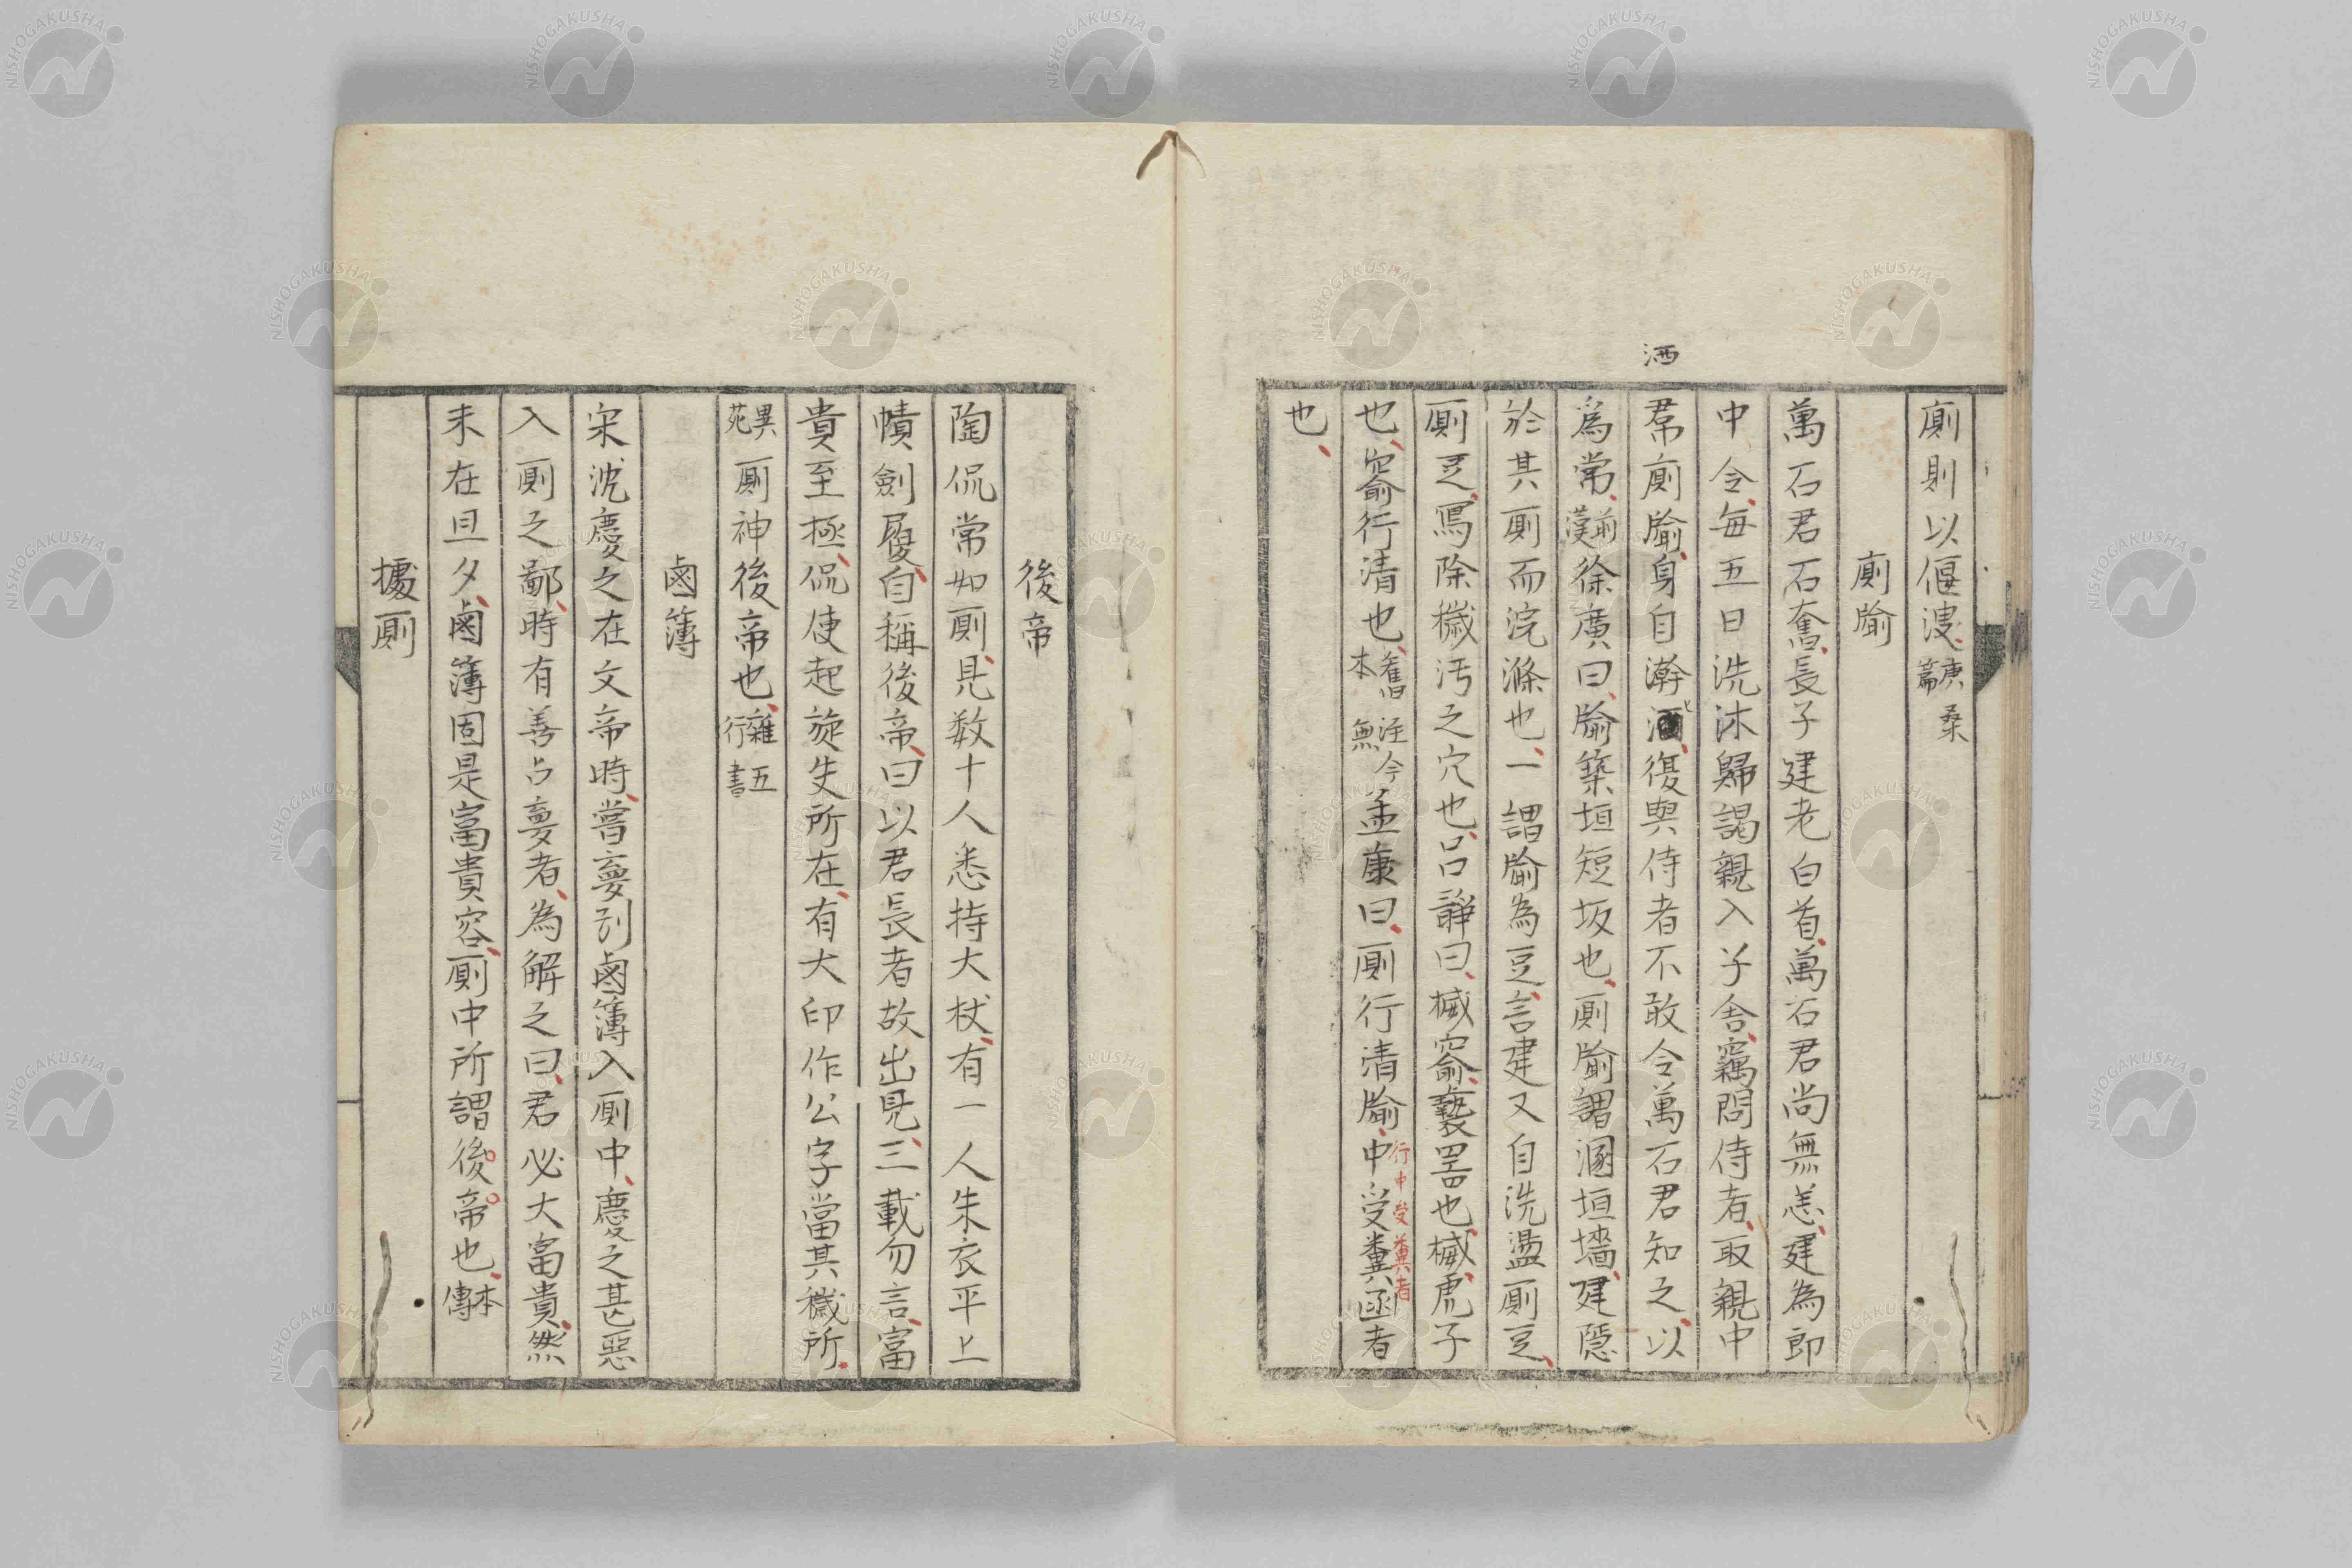 洒
廁則以偃溲庚桑篇
廁牏
萬石君石奮長子建老白首萬石君尚無恙建為郎
中令每五日洗沐歸謁親入子舍竊問侍者取親中
帬廁牏身自澣洒復與侍者不敢令萬石君知之以
為常前漢徐廣曰牏築垣短坂也廁牏謂溷垣墻建隱
於其廁而浣滌也一謂牏為竇言建又自洗盪廁豆
廁豆寫除穢汚之穴也呂靜曰楲窬褻器也楲虎子
也窬行清也舊本注無今孟康曰廁行清牏中受糞函者
行中受糞者
也
後帝
陶侃常如廁見数十人悉持大杖有一人朱衣平上
幘劍履自稱後帝曰以君長者故出見三載勿言富
貴至極侃使起旋失所在有大印作公字當其穢所
異苑廁神後帝也雜五行書
鹵簿
宋沈慶之在文帝時嘗夢引鹵簿入廁中慶之甚惡
入廁之鄙時有善占夢者為解之曰君必大富貴然
未在旦夕鹵簿固是富貴容廁中所謂後帝也本傳
據廁
NISHOGAKUSHA